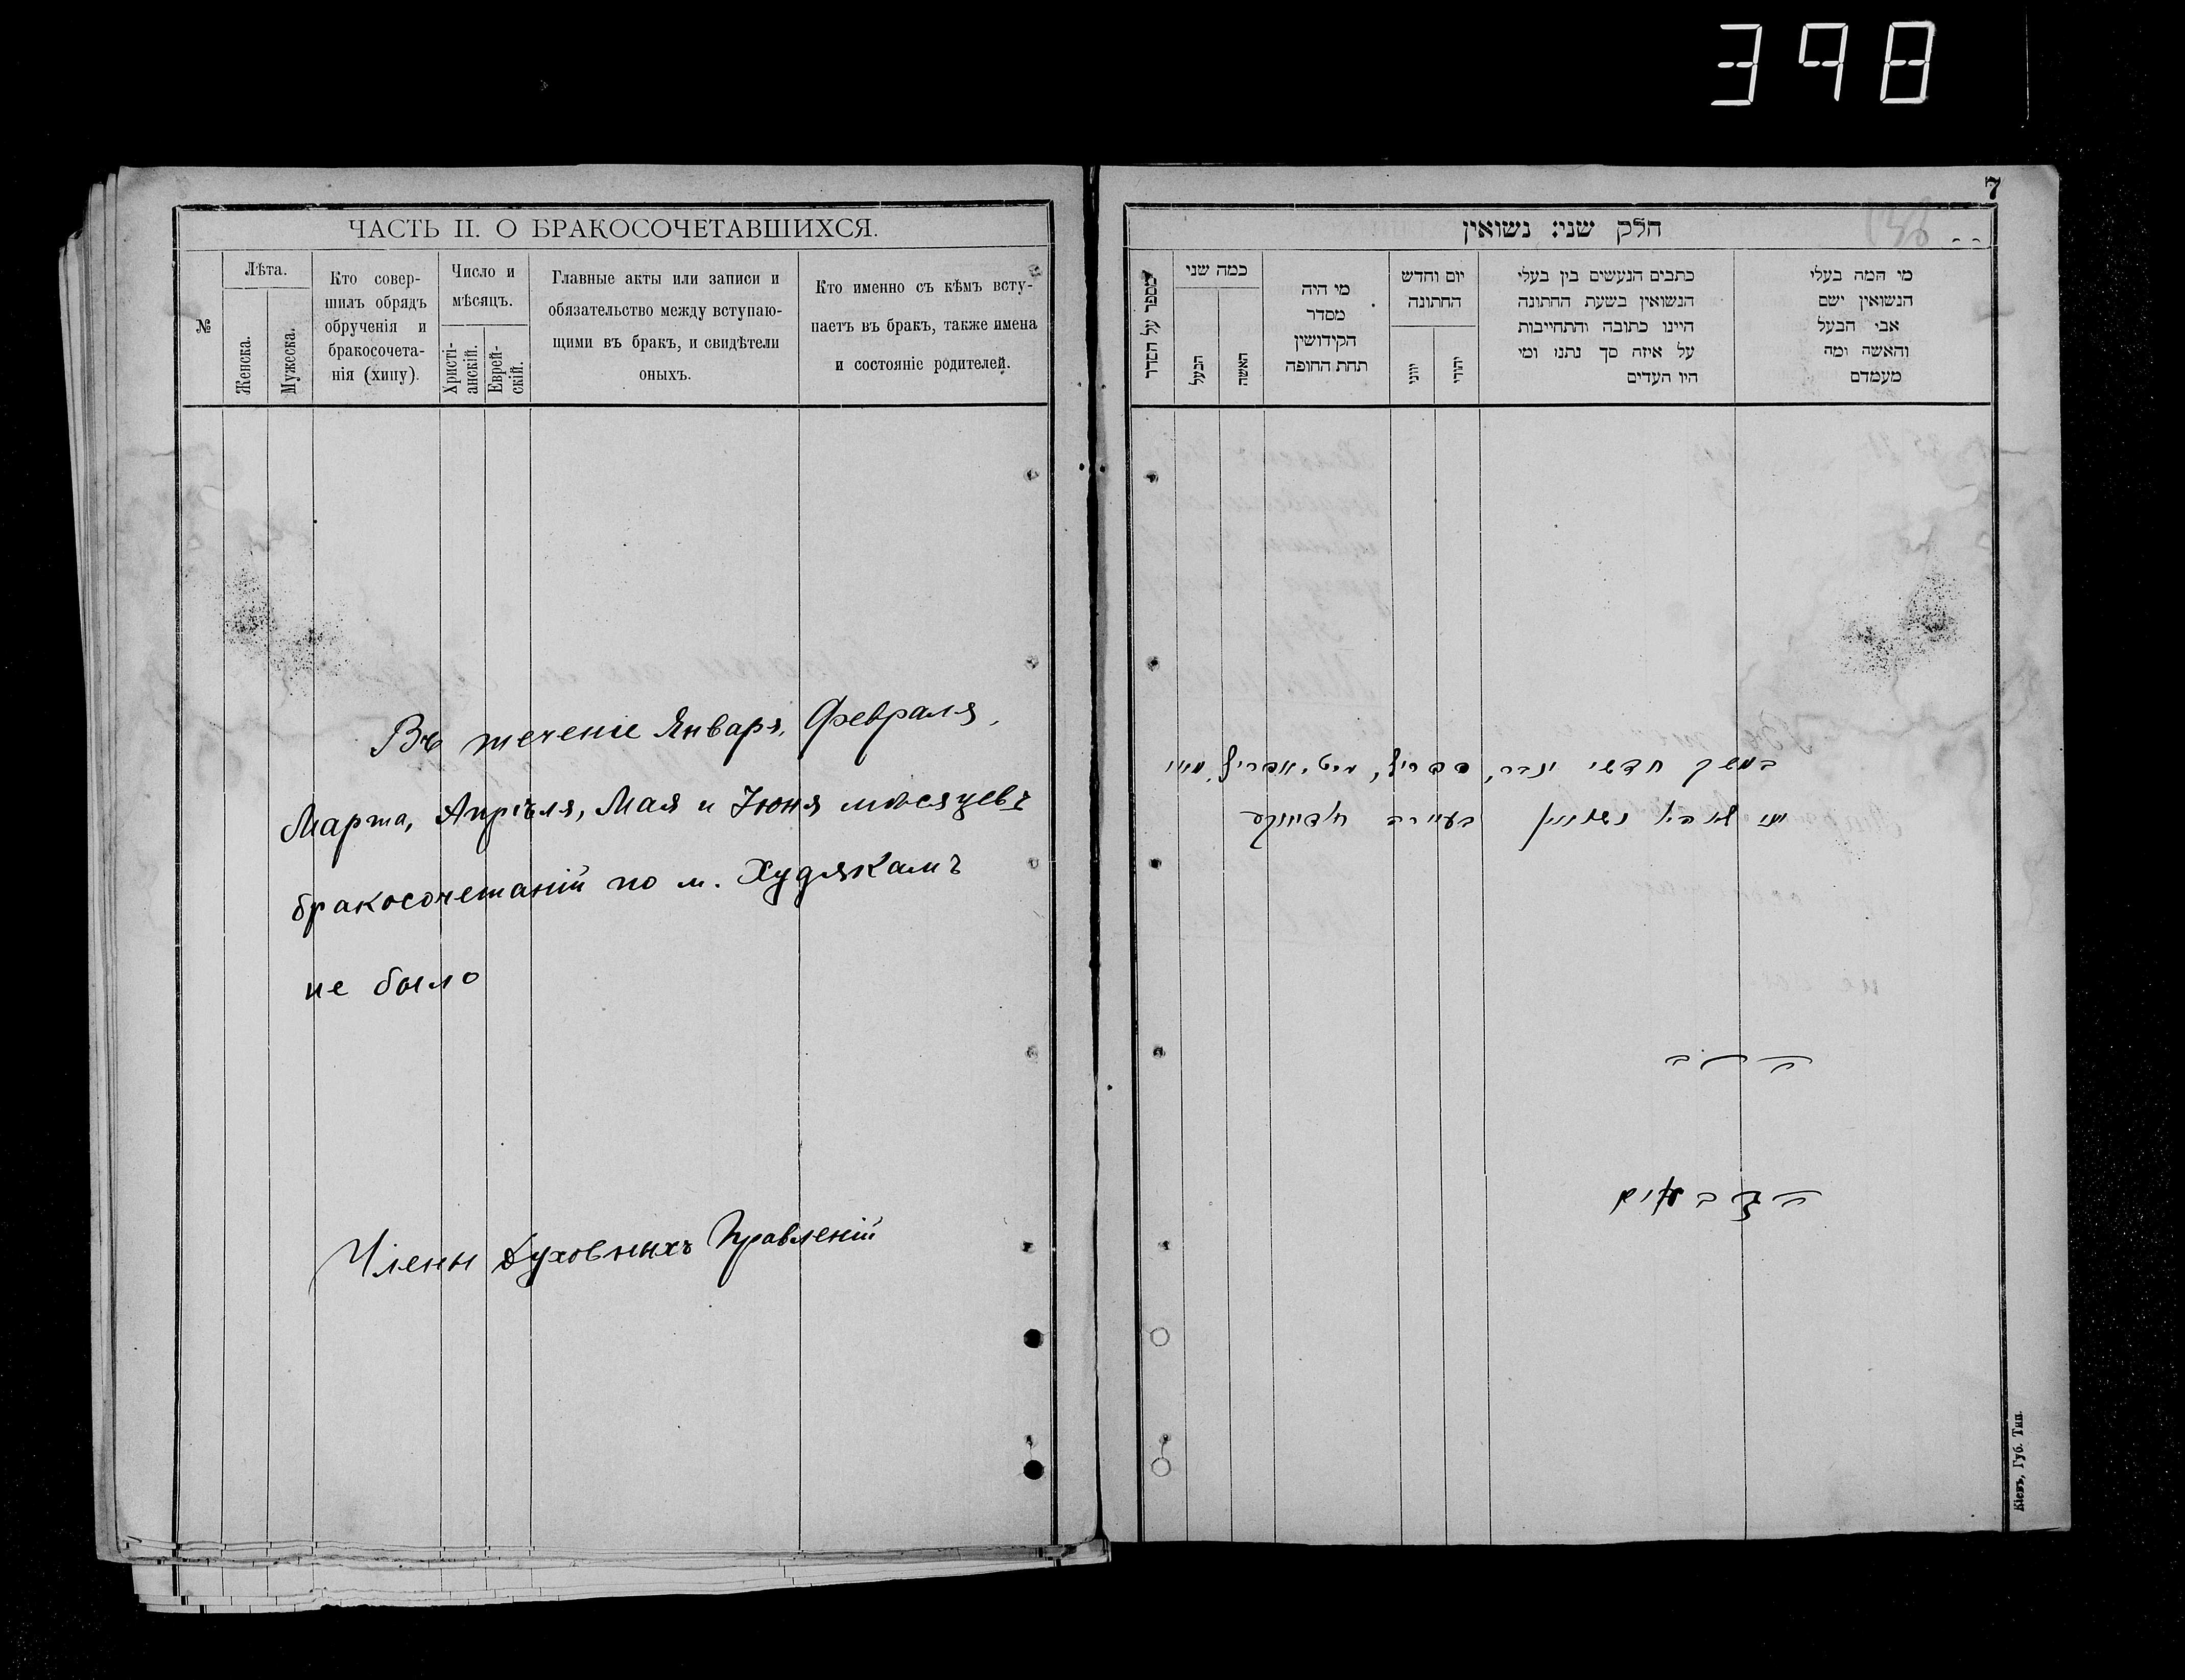 398
ЧАСТЬ II. О БРАКОСОЧЕТАВШИХСЯ.
№
Лѣта.
Женска.
Мужеска.
Кто совер-
шилъ обрядъ
обрученія и
бракосочета-
нія (хипу).
Число и
мѣсяцъ.
Христі-
анскій.
Еврей-
скій.
Главные акты или записи и
обязательство между вступаю-
щими въ бракъ, и свидѣтели
оныхъ.
Кто именно съ кѣмъ всту-
паетъ въ бракъ, также имена
и состояніе родителей.
Въ теченіе Января, Февраля,
Марта, Апрѣля, Мая и Іюня мѣсяцевъ
бракосочетаній по м. Худякамъ
не было
Члены Духовныхъ Правленій
7
חלק שני: נשואין
מי המה בעלי
הנשואין ישם
אבי הבעל
והאשה ומה
מעמדם
כתבים הנעשים בין בעלי
הנשואין בשעת החתונה
היינו כתובה והתחייבות
על איזה סך נתנו ומי
היו העדים
יום וחדש
החתונה
יהודי
יווני
מי היה
מסדר
הקידושין
תחת החופה
כמה שני
האשה
הבעל
מספר על הסדר
במשך חדשי ינבר,
לא היו נשואין בעיירה
הרב
Кіевъ, Губ. Тип.